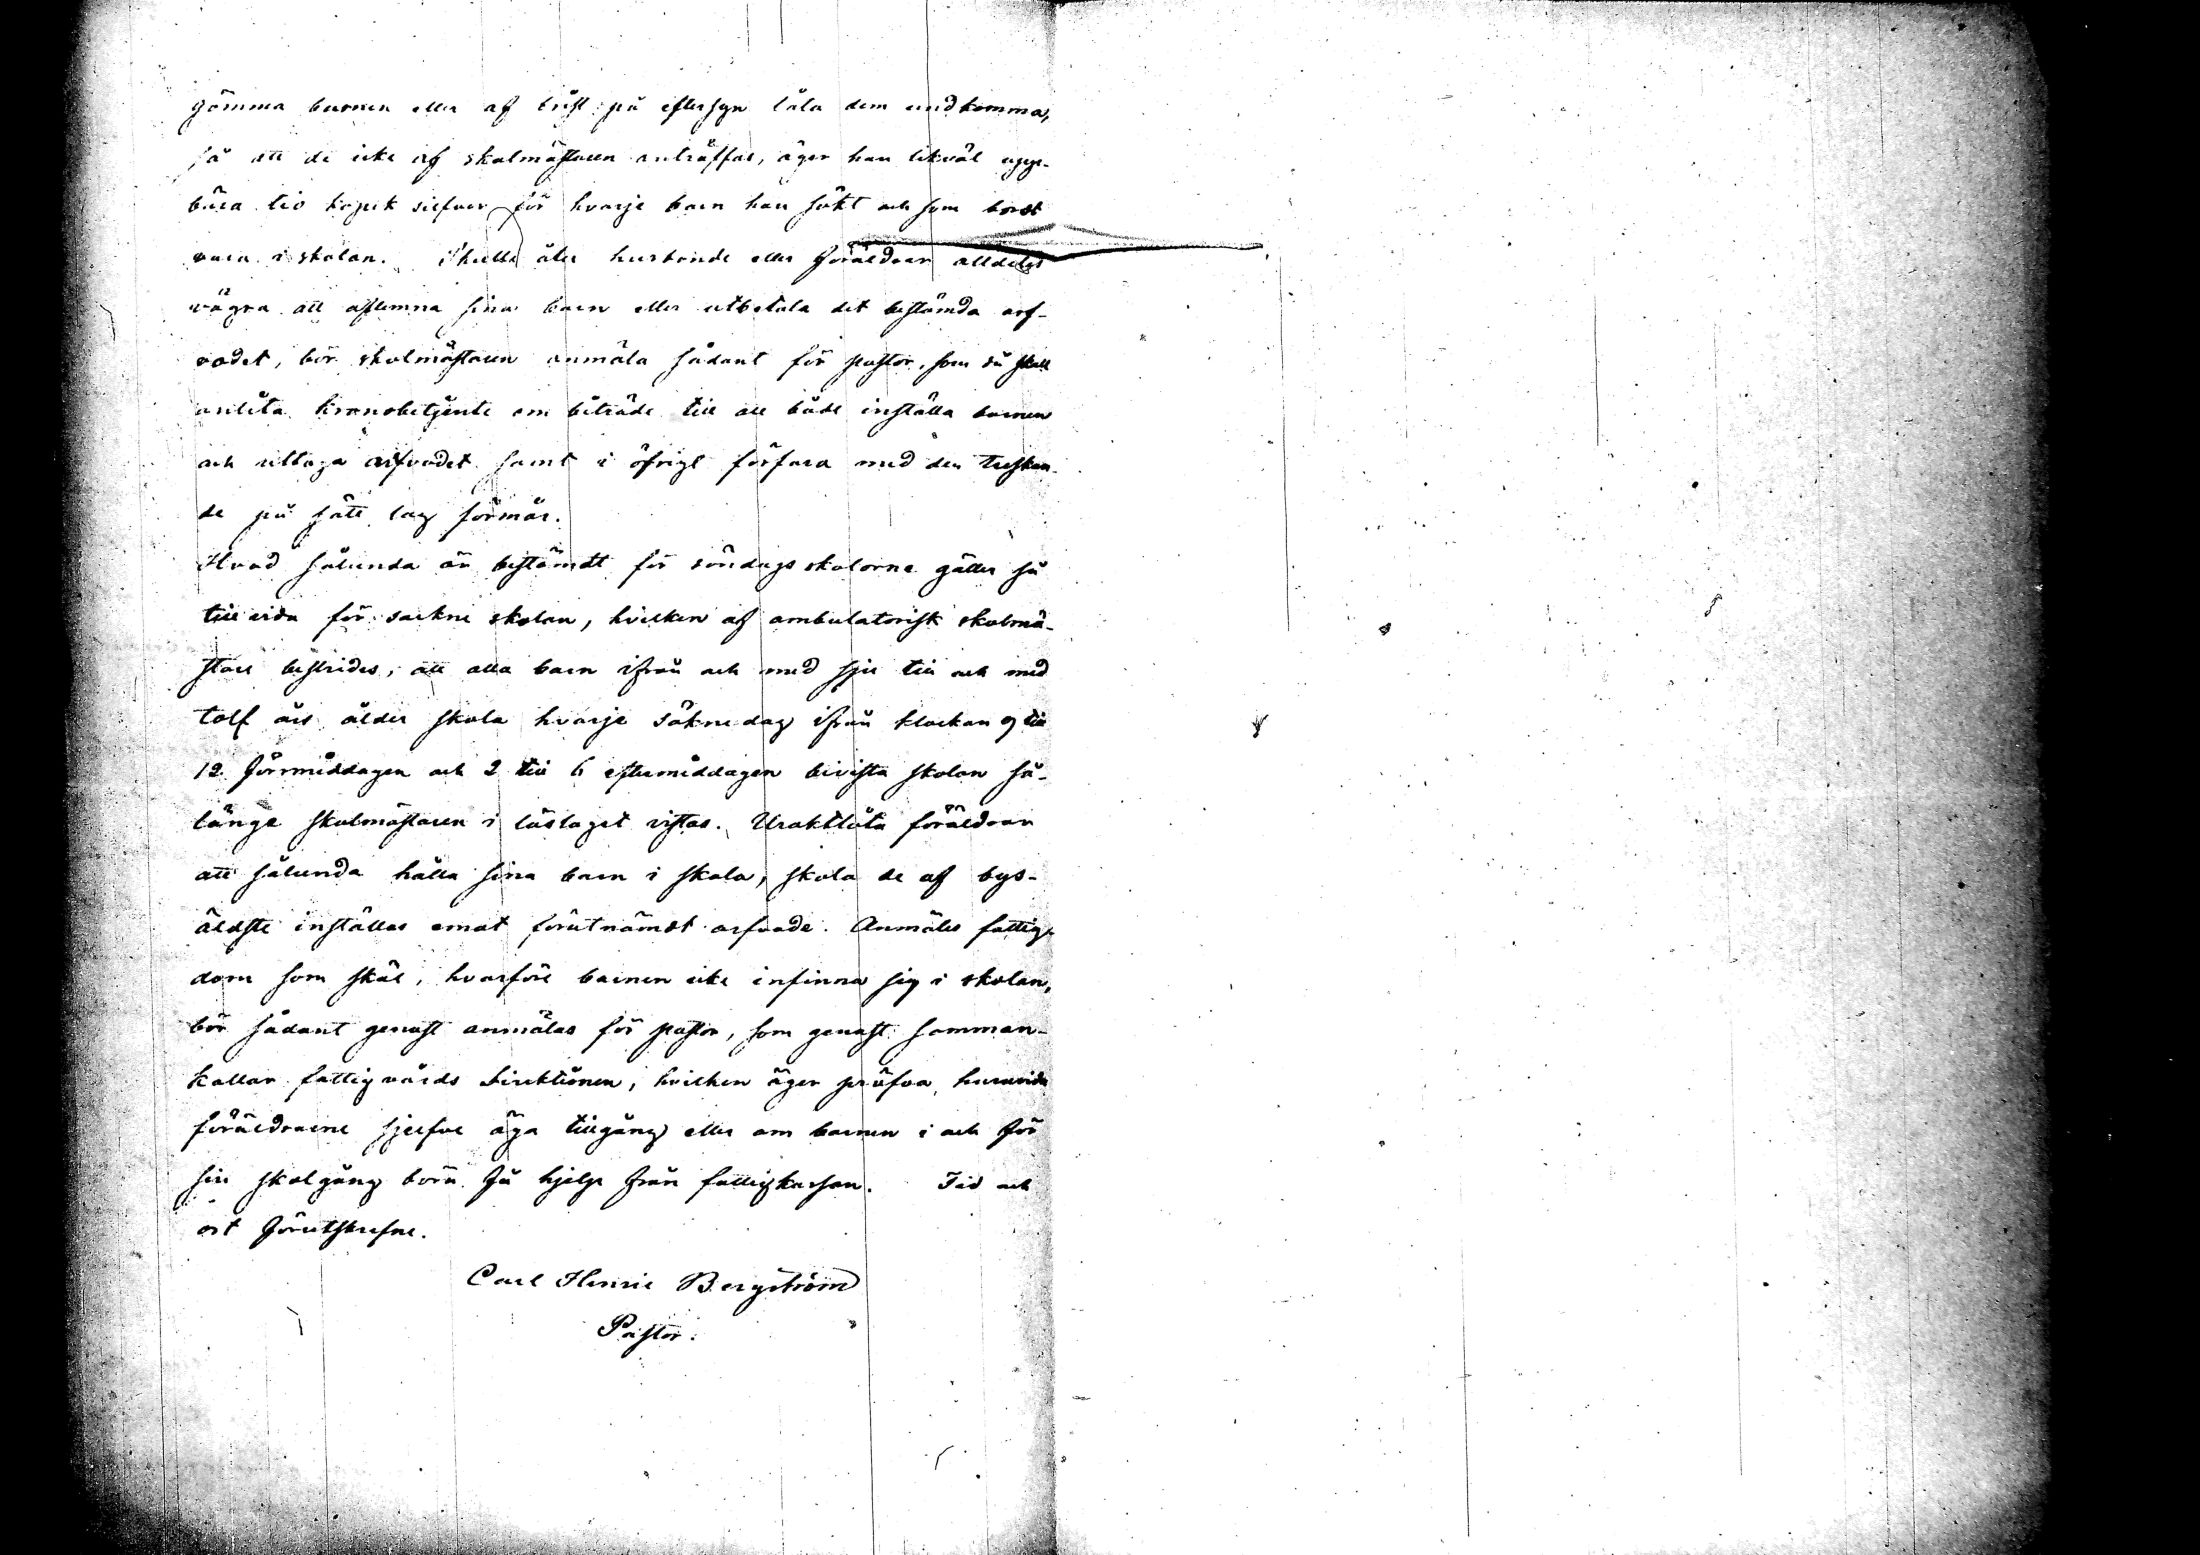 gömma barnen eller af brist på eftersyn låta dem undkomma,
så att de icke af skolmästaren anträffas, äger han likväl upp-
bära tio kopek silfver för hvarje barn han sökt och som bordt
vara i skolan. Skulle åter husbonde eller föräldrar alldeles
vägra att aflemna sina barn eller utbetala det bestämda arf-
vodet, bör skolmästaren anmäla sådant för pastor, som då skall
anlita kronobetjente om biträde till att både inställa barnen
och uttaga arfvodet samt i öfrigt förfara med den treskan-
de på sätt lag förmår.
Hvad sålunda är bestämdt för söndags skolorne gäller så
till vida för söckne skolan, hvilken af ambulatorisk skolmä-
stare bestrides, att alla barn ifrån och med sju till och med
tolf års ålder skola hvarje söknedag ifrån klockan 9 till
12 förrmiddagen och 2 till 6 eftermiddagen bivista skolan så-
länge skolmästaren i läslaget vistas. Uraktlåta föräldrar
att sålunda hålla sina barn i skola, skola de af bys-
äldste inställas emot förutnämdt arfvode. Anmäles fattig-
dom som skäl, hvarföre barnen icke infinna sig i skolan,
bör sådant genast anmälas för pastor, som genast samman-
kallar fattigvårds direktionen, hvilken äger pröfva, huruvida
föräldrarne sjelfve äga tillgång eller om barnen i och för
sin skolgång böra få hjelp från fattigkassan. Tid och
ort förutskrefne.
Carl Henric Bergström
Pastor.